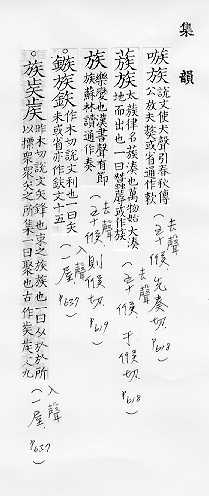 集韻
嗾族 說文使犬聲引春秋傳公嗾夫獒或省通作軟
(去聲 五十候 先奏切 P.618)
蔟族 太蔟律名蔟湊也萬物始大湊地而出也一曰
或作族
(去聲 五十候 千候切 P.618)
族 樂變也漢書聲有節族蘇林讀通作奏
(去聲 五十候 則候切 P.619)
鏃族鉃 作木切說文利也一曰矢末或省亦作鉃文十五
(入聲 一屋 P.637)
族
昨木切說文矢鋒也束之族族也一曰从㫃㫃所以標眾眾矢之所集一曰聚也古作
文九
(入聲 一屋 P.637)